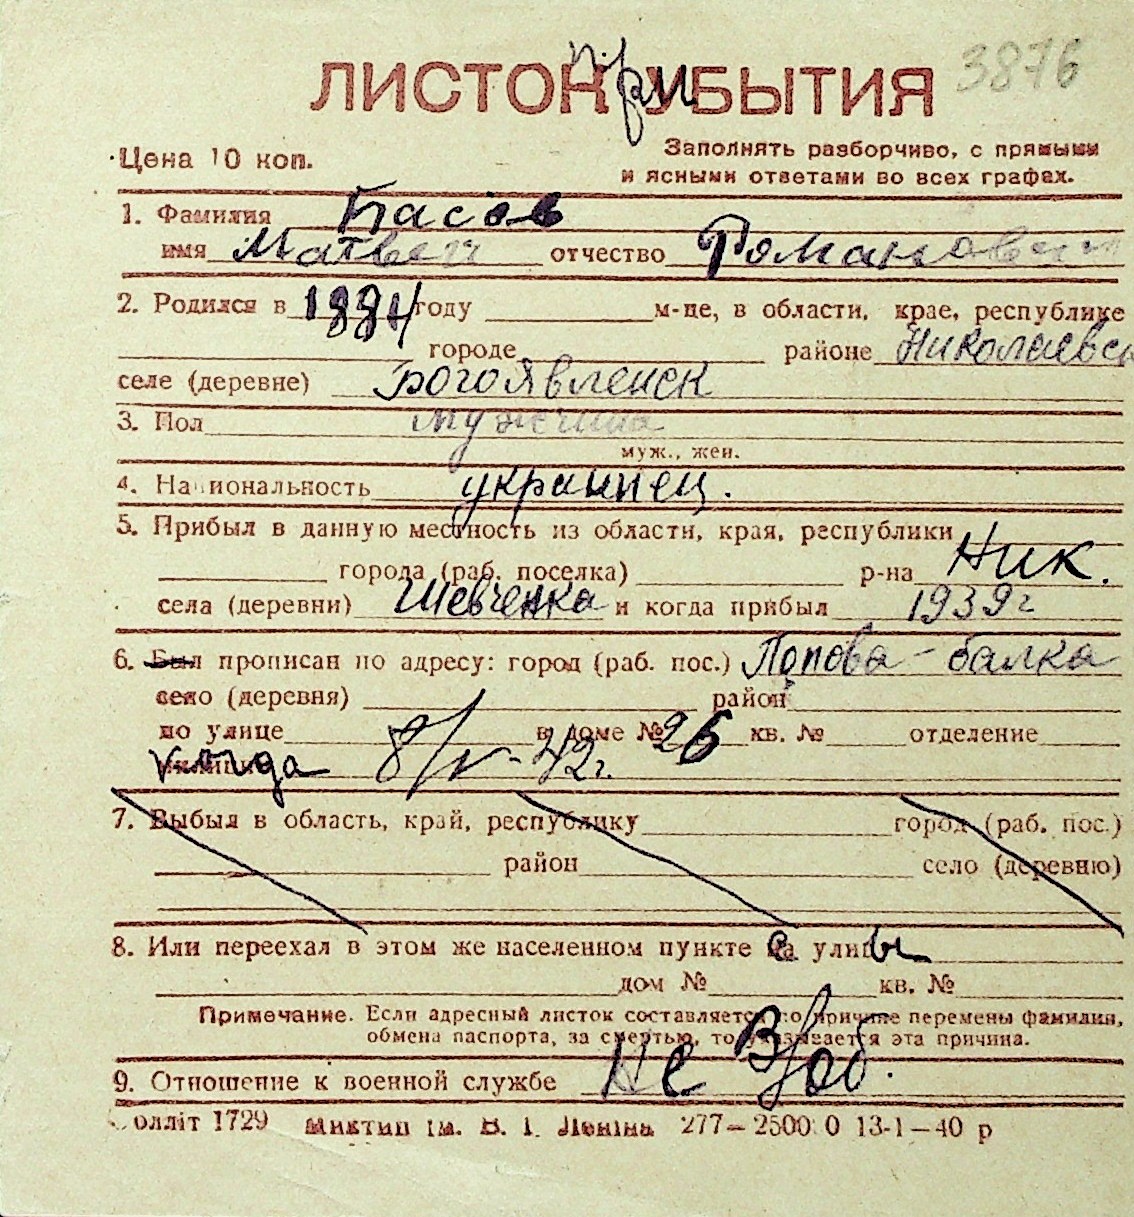 ЛИСТОК УБЫТИЯ при 3876
Цена 10 коп.
Заполнять разборчиво, с прямыми
и ясными ответами во всех графах.
1. Фамилия Басов
имя Матвей отчество Романович
2. Родился в 1884 году м-це, в области, крае, республике
городе районе Николаевск
селе (деревне) Богоявленск
3. Пол мужчина
муж., жен.
4. Национальность украинец.
5. Прибыл в данную местность из области, края, республики
города (раб. поселка) р-на Ник.
села (деревни) Шевченка и когда прибыл 1939 г
6. Был прописан по адресу: город (раб. пос.) Попова-балка
село (деревня) район
по улице в доме № 26 кв. № отделение
милиции когда 8/V-42 г.
7. Выбыл в область, край, республику город (раб. пос.)
район село (деревню)
8. Или переехал в этом же населенном пункте на улицы
дом № кв. №
Примечание. Если адресный листок составляется по причине перемены фамилии,
обмена паспорта, за смертью, то указывается эта причина.
9. Отношение к военной службе Не в/об.
олліт 1729 Миктип ім. В. І. Леніна 277—2500 0 13-1—40 р